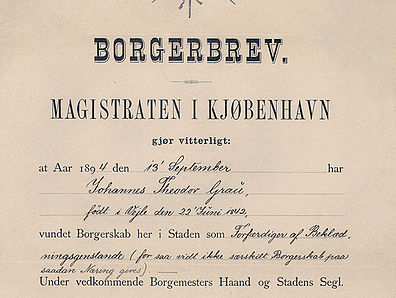 BORGERBREV.
MAGISTRATEN I KJØBENHAVN
gjør vitterligt:
at Aar 1894 den 13' September har
Johannes Theodor Graü,
født i Vejle den 22' Juni 1842,
vundet Borgerskab her i Staden som Forfærdiger af Beklæd
ningsgenstande (for saa vidt ikke særskilt Borgerskab paa
saadan Næring gives)
Under vedkommende Borgemesters Haand og Stadens Segl.